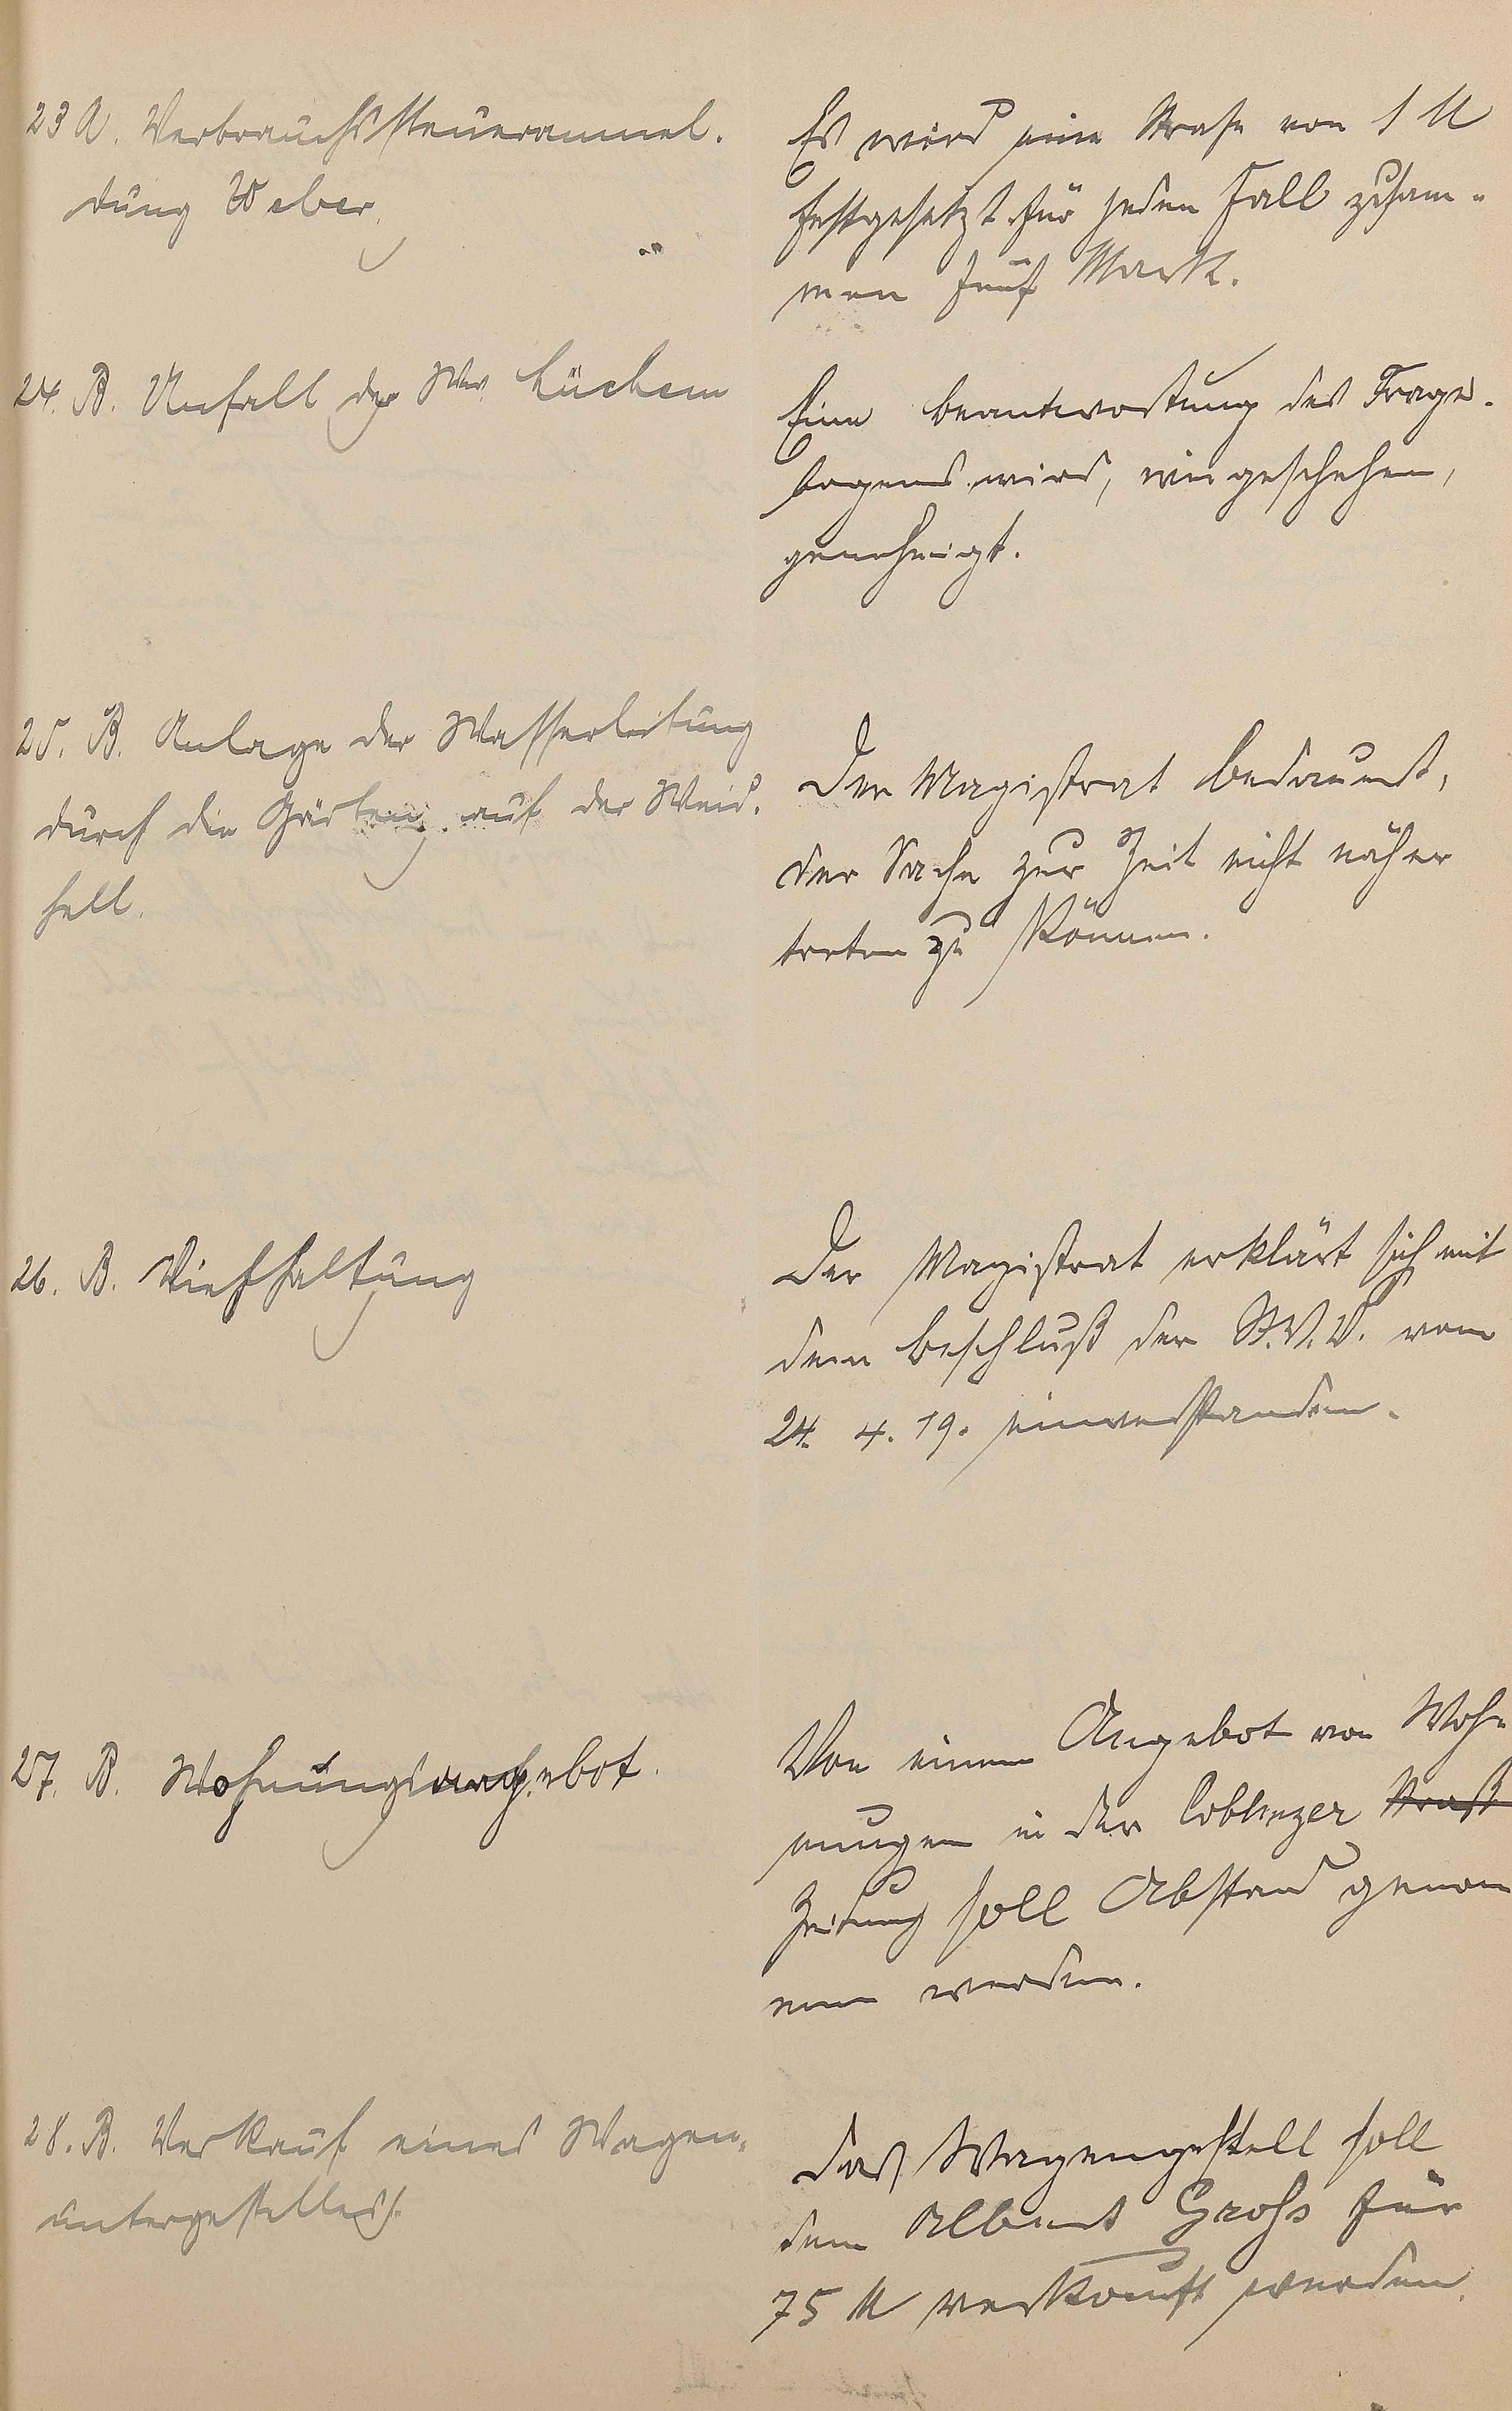 23 A. Verbrauchssteueranmel-
dung Weber
Es wird eine Strafe von 1 M
festgesetzt für jeden Fall zusam-
men fünf Mark.
24. B. Unfall der Ww. Lüchem
Eine Beantwortung des Frage-
bogens wird, wie geschehen,
genehmigt.
25. B. Anlage der Wasserleitung
durch die Gärten auf der Weid.
hell.
Der Magistrat bedauert,
der Sache zur Zeit nicht näher
treten zu können.
26. B. Viehhaltung
Der Magistrat erklärt sich mit
dem Beschluß der St.V.V. vom
24. 4. 19. einverstanden.
27. B. Wohnungsangebot.
Von einem Angebot von Woh-
nungen in der Coblenzer Straß
Zeitung soll Abstand genom
men werden.
28. B. Verkauf eines Wagen-
untergestelles.
Das Wagengestell soll
dem Albert Groß für
75 M verkauft werden.